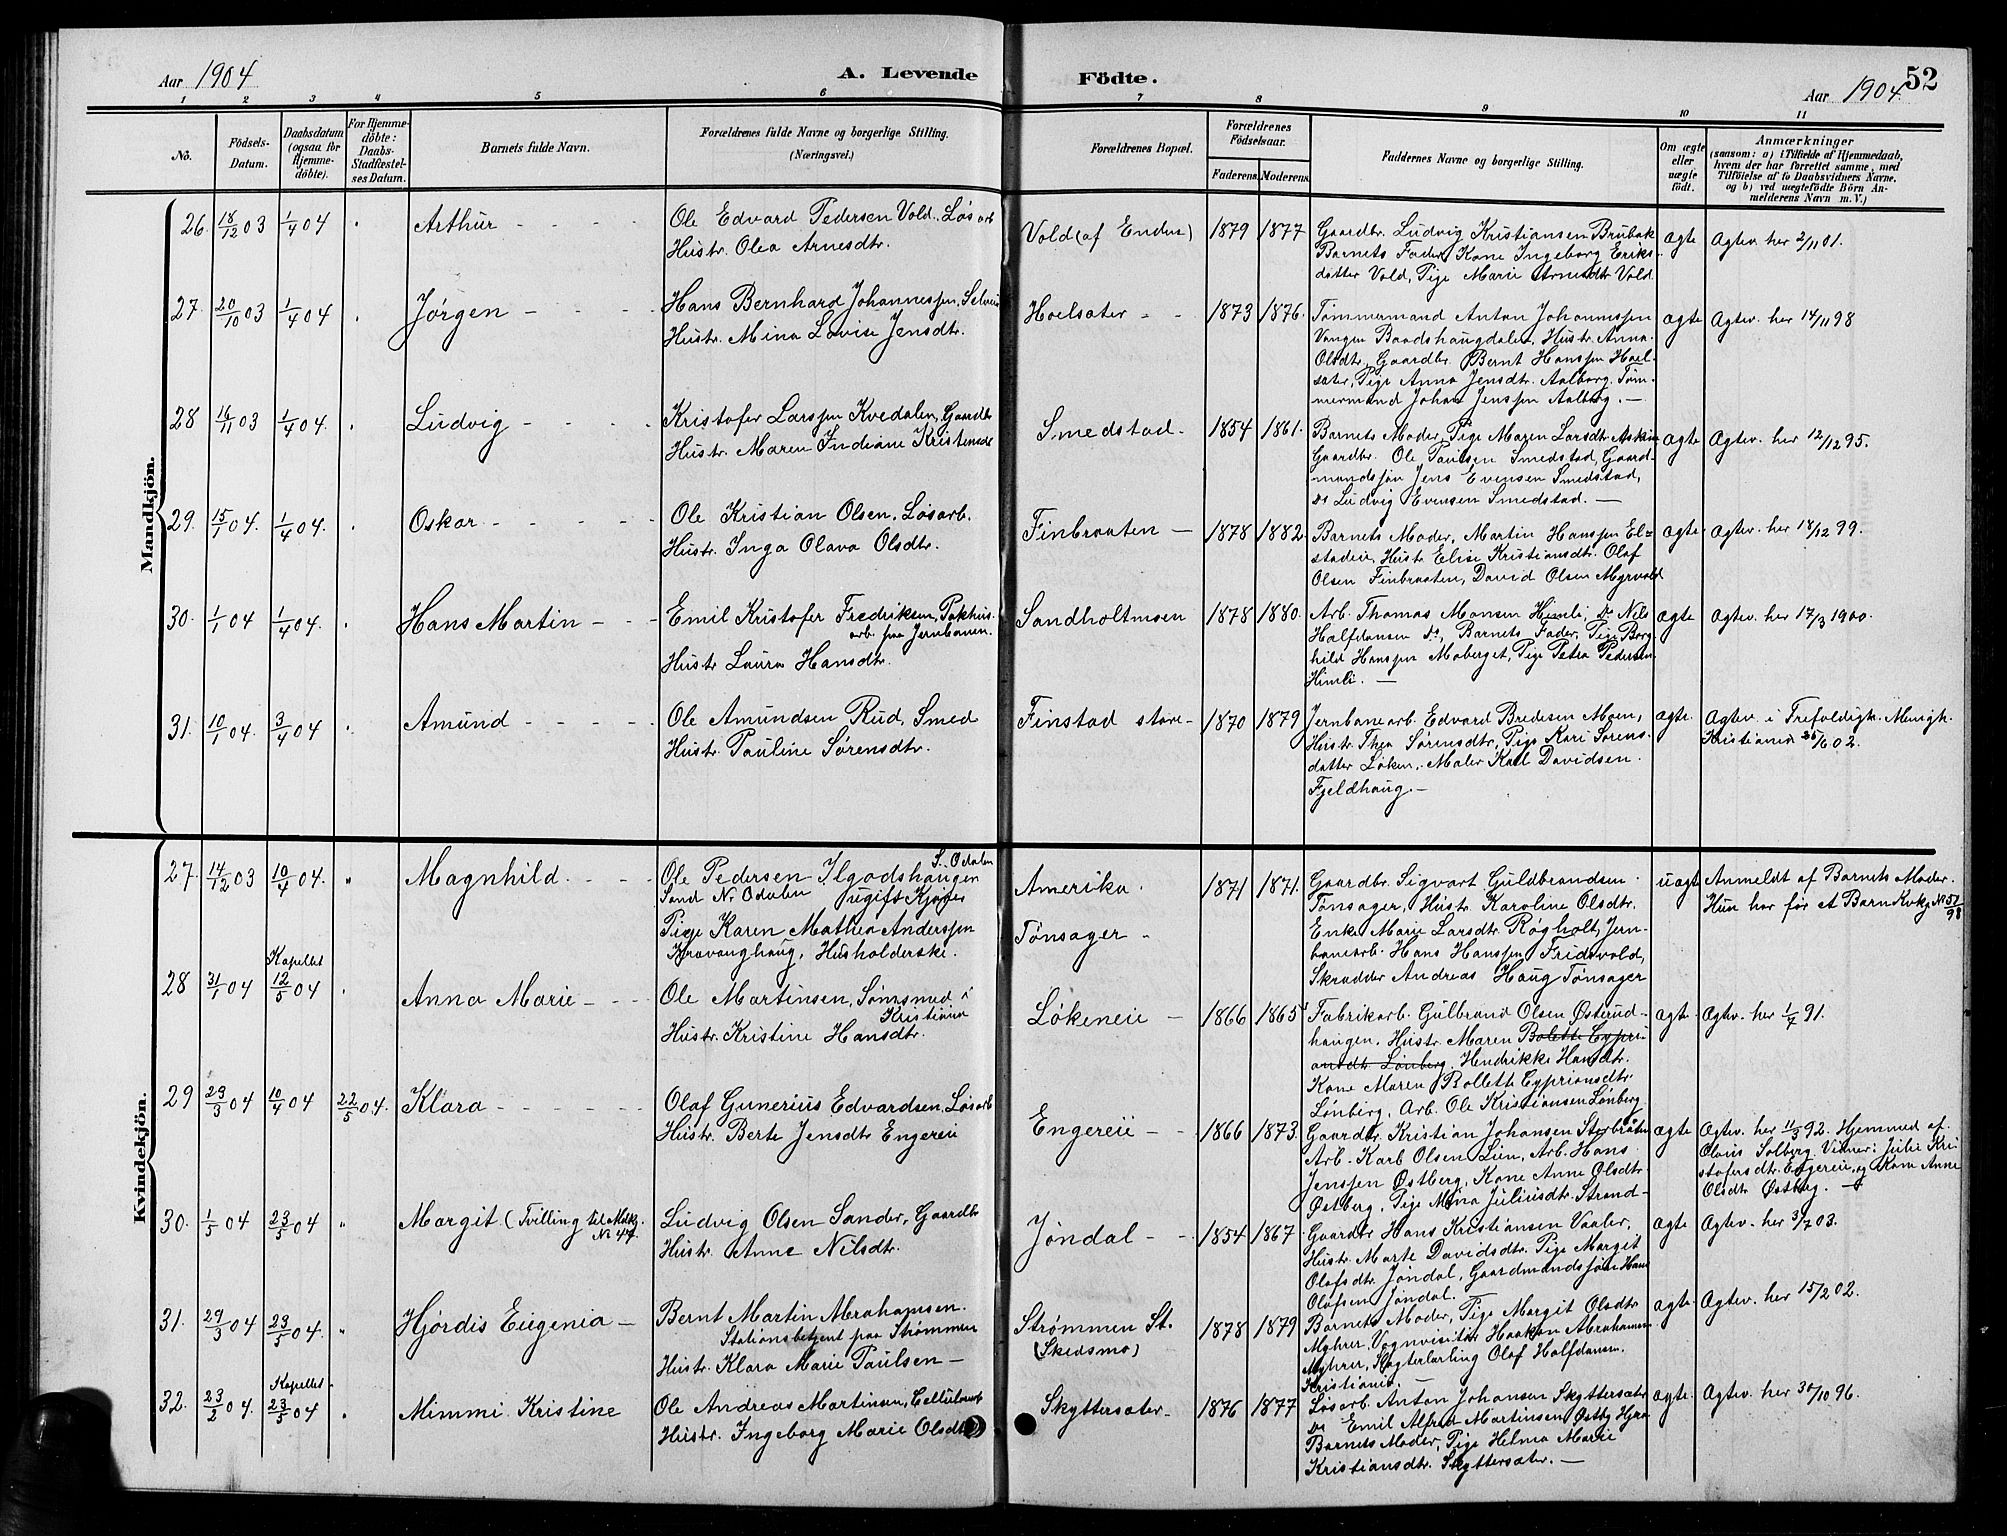 Aar 1904
A. Levende
Födte.
52
Aar 1904.
1 2 3 4 5 6 7 8 9 10 11
No.
Födsels-
Datum.
Daabsdatum
(ogsaa for
Hjemme-
döbte).
For Hjemme-
döbte:
Daabs-
Stadfæstel-
ses Datum.
Barnets fulde Navn.
Forældrenes fulde Navne og borgerlige Stilling.
(Næringsvei.)
Forældrenes Bopæl.
Forældrenes
Födselsaar.
Faderens. Moderens.
Faddernes Navne og borgerlige Stilling.
Om ægte
eller
uægte
födt.
Anmærkninger
(saasom: a) i Tilfælde af Hjemmedaab,
hvem der har forrettet samme, med
Tilföielse af to Daabsvidners Navne.
og b) ved uægtefödte Börn An-
melderens Navn m. V.)
Mandkjön.
26. 18/12 03 1/4 04 " Arthur - - - -
Ole Edvard Pedersen Vold, Løsarb
Hustr. Olea Arnesdtr.
Vold (af Enden) 1879 1877
Gaardbr. Ludvig Kristiansen Brubak
Barnets Fader, Kone Ingeborg Eriks-
datter Vold, Pige Marie Arnesdtr Vold
ægte Ægtev. her 2/11 01.
27. 20/10 03 1/4 04 " Jørgen - - - -
Hans Bernhard Johannessen, Selveier
Hustr. Mina Lovise Jensdtr.
Hoelsæter - - 1873 1876.
Tømmermand Anton Johannessen
Vangen Baadshaugdalen, Hustr. Anna
Olsdtr, Gaardbr. Bernt Hanssen Hoel-
sæter, Pige Anna Jensdtr. Aalborg. Tøm-
mermand Johan Jenssen Aalborg. —
ægte Ægtev. her 14/11 98
28 16/11 03 1/4 04. " Ludvig - - - -
Kristofer Larssen Kvedalen, Gaardbr
Hustr. Maren Indiane Kristensdt
Smedstad. 1854 1861.
Barnets Moder, Pige Maren Larsdtr Askim
Gaardbr. Ole Paulsen Smedstad, Gaard-
mandssøn Jens Evensen Smedstad,
Do Ludvig Evensen Smedstad. —
ægte Ægtev. her 12/12 95.
29. 15/1 04. 1/4 04. " Oskar - - - -
Ole Kristian Olsen, Løsarb.
Hustr. Inga Olava Olsdtr.
Finbraaten — 1878 1882
Barnets Moder, Martin Hanssen El-
stadeie, Hustr. Elise Kristiansdtr. Olaf
Olsen Finbraaten, David Olsen Myrvold
ægte Ægtev. her 18/12 99.
30. 1/1 04 1/4 04. " Hans Martin - - -
Emil Kristofer Fredriksen, Pakhus.
arb. paa Jernbanen.
Hustr Laura Hansdtr.
Sandholtmoen 1878 1880.
Arb. Thomas Monsen Himli, Do Nils
Halfdansen Do, Barnets Fader, Pige Borg
hild Hanssen Moberget, Pige Petra Pedersen
Himli. —
ægte Ægtev. her 17/3 1900.
31. 10/1 04. 3/4 04 " Amund - - - -
Ole Amundsen Rud, Smed
Hustr. Pauline Sørensdtr.
Finstad store - 1870 1879
Jernbanearb. Edvard Bredesen Moen,
Hustr. Thea Sørensdtr, Pige Kari Sørens-
datter Løken, Maler Karl Davidsen
Fjeldhaug. —
ægte. Ægtev. i Trefoldigh. Menigh.
Kristiania /6 02.
Kvindekjön.
27. 14/12 03 10/4 04. " Magnhild. - - -
S. Odalen
Ole Pedersen Ilgodshaugen
Sand Nr. Odalen ugift Kjører
Pige Karen Mathea Anderssen
Kravanghaug, Husholderske.
Amerika.
Tønsager - 1871 1871.
Gaardbr. Sigvart Guldbrandsen
Tønsager, Hustr. Karoline Olsdtr.
Enke Marie Larsdtr. Røgholt, Jern-
banearb. Hans Hanssen Fridsvold,
Skrædder Andreas Haug Tønsager
uægte Anmeldt af Barnets Moder.
Hun har før et Barn Kvkj. No 51/98
28 31/1 04 Kapellet 12/5 04 " Anna Marie - - -
Ole Martinsen, Sømsmed i
Kristiania
Hustr. Kristine Hansdtr.
Løkeneie - 1866 1865
Fabrikarb. Gulbrand Olsen Østerud-
haugen. Hustr. Maren Bolette Cypri-
ansdtr. Lønberg. Hendrikke Hansdtr.
Kone Maren Bollette Cypriansdtr
Lønberg, Arb. Ole Kristiansen Lønberg
ægte. Ægtev. her 1/4 91.
29 29/3 04 10/4 04 22/5 04. Klara - - - -
Olaf Gunerius Edvardsen, Løsarb
Hustr. Berte Jensdtr Engereie
Engereie - - 1866 1873.
Gaardbr. Kristian Johansen Storbråten
Arb. Karl Olsen Lien, Arb. Hans
Jenssen Østberg, Kone Anne Olsdtr
Østberg, Pige Mina Juliusdtr. Strand-
ægte Ægtev. her 11/3 92. Hjemmed. af
Olavis Solberg. Vidner: Julie Kri-
stofersdtr. Engereie, og Kone Anne
Olsdtr Østberg. —
30. 1/5 04 23/5 04 " Margit (Tvilling til Mdkj.
No 47.
Ludvig Olsen Sander, Gaardbr
Hustr. Anne Nilsdtr.
Jøndal - - 1854 1867
Gaardbr Hans Kristiansen Vaaler,
Hustr. Marte Davidsdtr. Pige Margit
Olafsdtr. Jøndal, Gaardmandssøn Hans
Olafsen Jøndal.
ægte Ægtev. her 3/7 03.
31. 29/3 04 23/5 04. " Hjørdis Eugenia -
Bernt Martin Abrahamsen.
Stationsbetjent paa Strømmen
Hustr. Klara Marie Paulsen —
Strømmen St.
(Skedsmo) 1878 1879
Barnets Moder, Pige Margit Olsdtr
Myhrer, Vognvisitør Haakon Abrahamsen
Myhrer, Slagterlærling Olaf Halfdansen.
Kristiania. —
ægte. Ægtev. her 15/2 02.
32. 23/2 04. Kapellet 23/5 04 " Mimmi Kristine
Ole Andreas Martinsen, Cellulosearb
Hustr. Ingeborg Marie Olsdtr
Skyttersæter. 1876 1877
Løsarb. Anton Johansen Skyttersæter
Do Emil Alfred Martinsen Østby
Barnets Moder, Pige Helma Marie
Kristiansdtr. Skyttersæter. —
ægte. Ægtev. her 30/10 96.